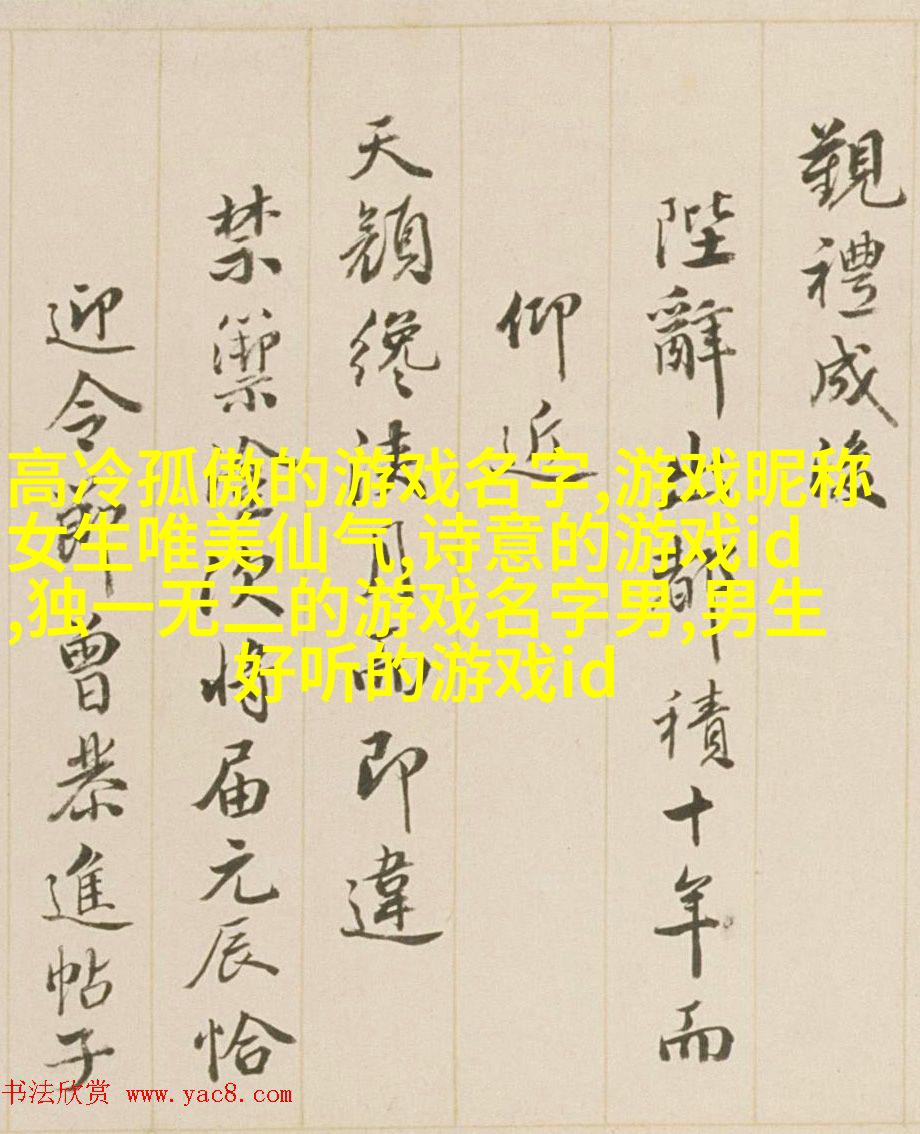 覲禮成後
陛辭出都積十年而
仰近
天顏纔浹月而即違
禁籞次將届元辰恰
迎令節曾恭進帖子
高冷孤傲的游戏名字,游戏昵称
女生唯美仙气,诗意的游戏id
,独一无二的游戏名字男,男生
好听的游戏id
书法欣赏 www.yac8.com